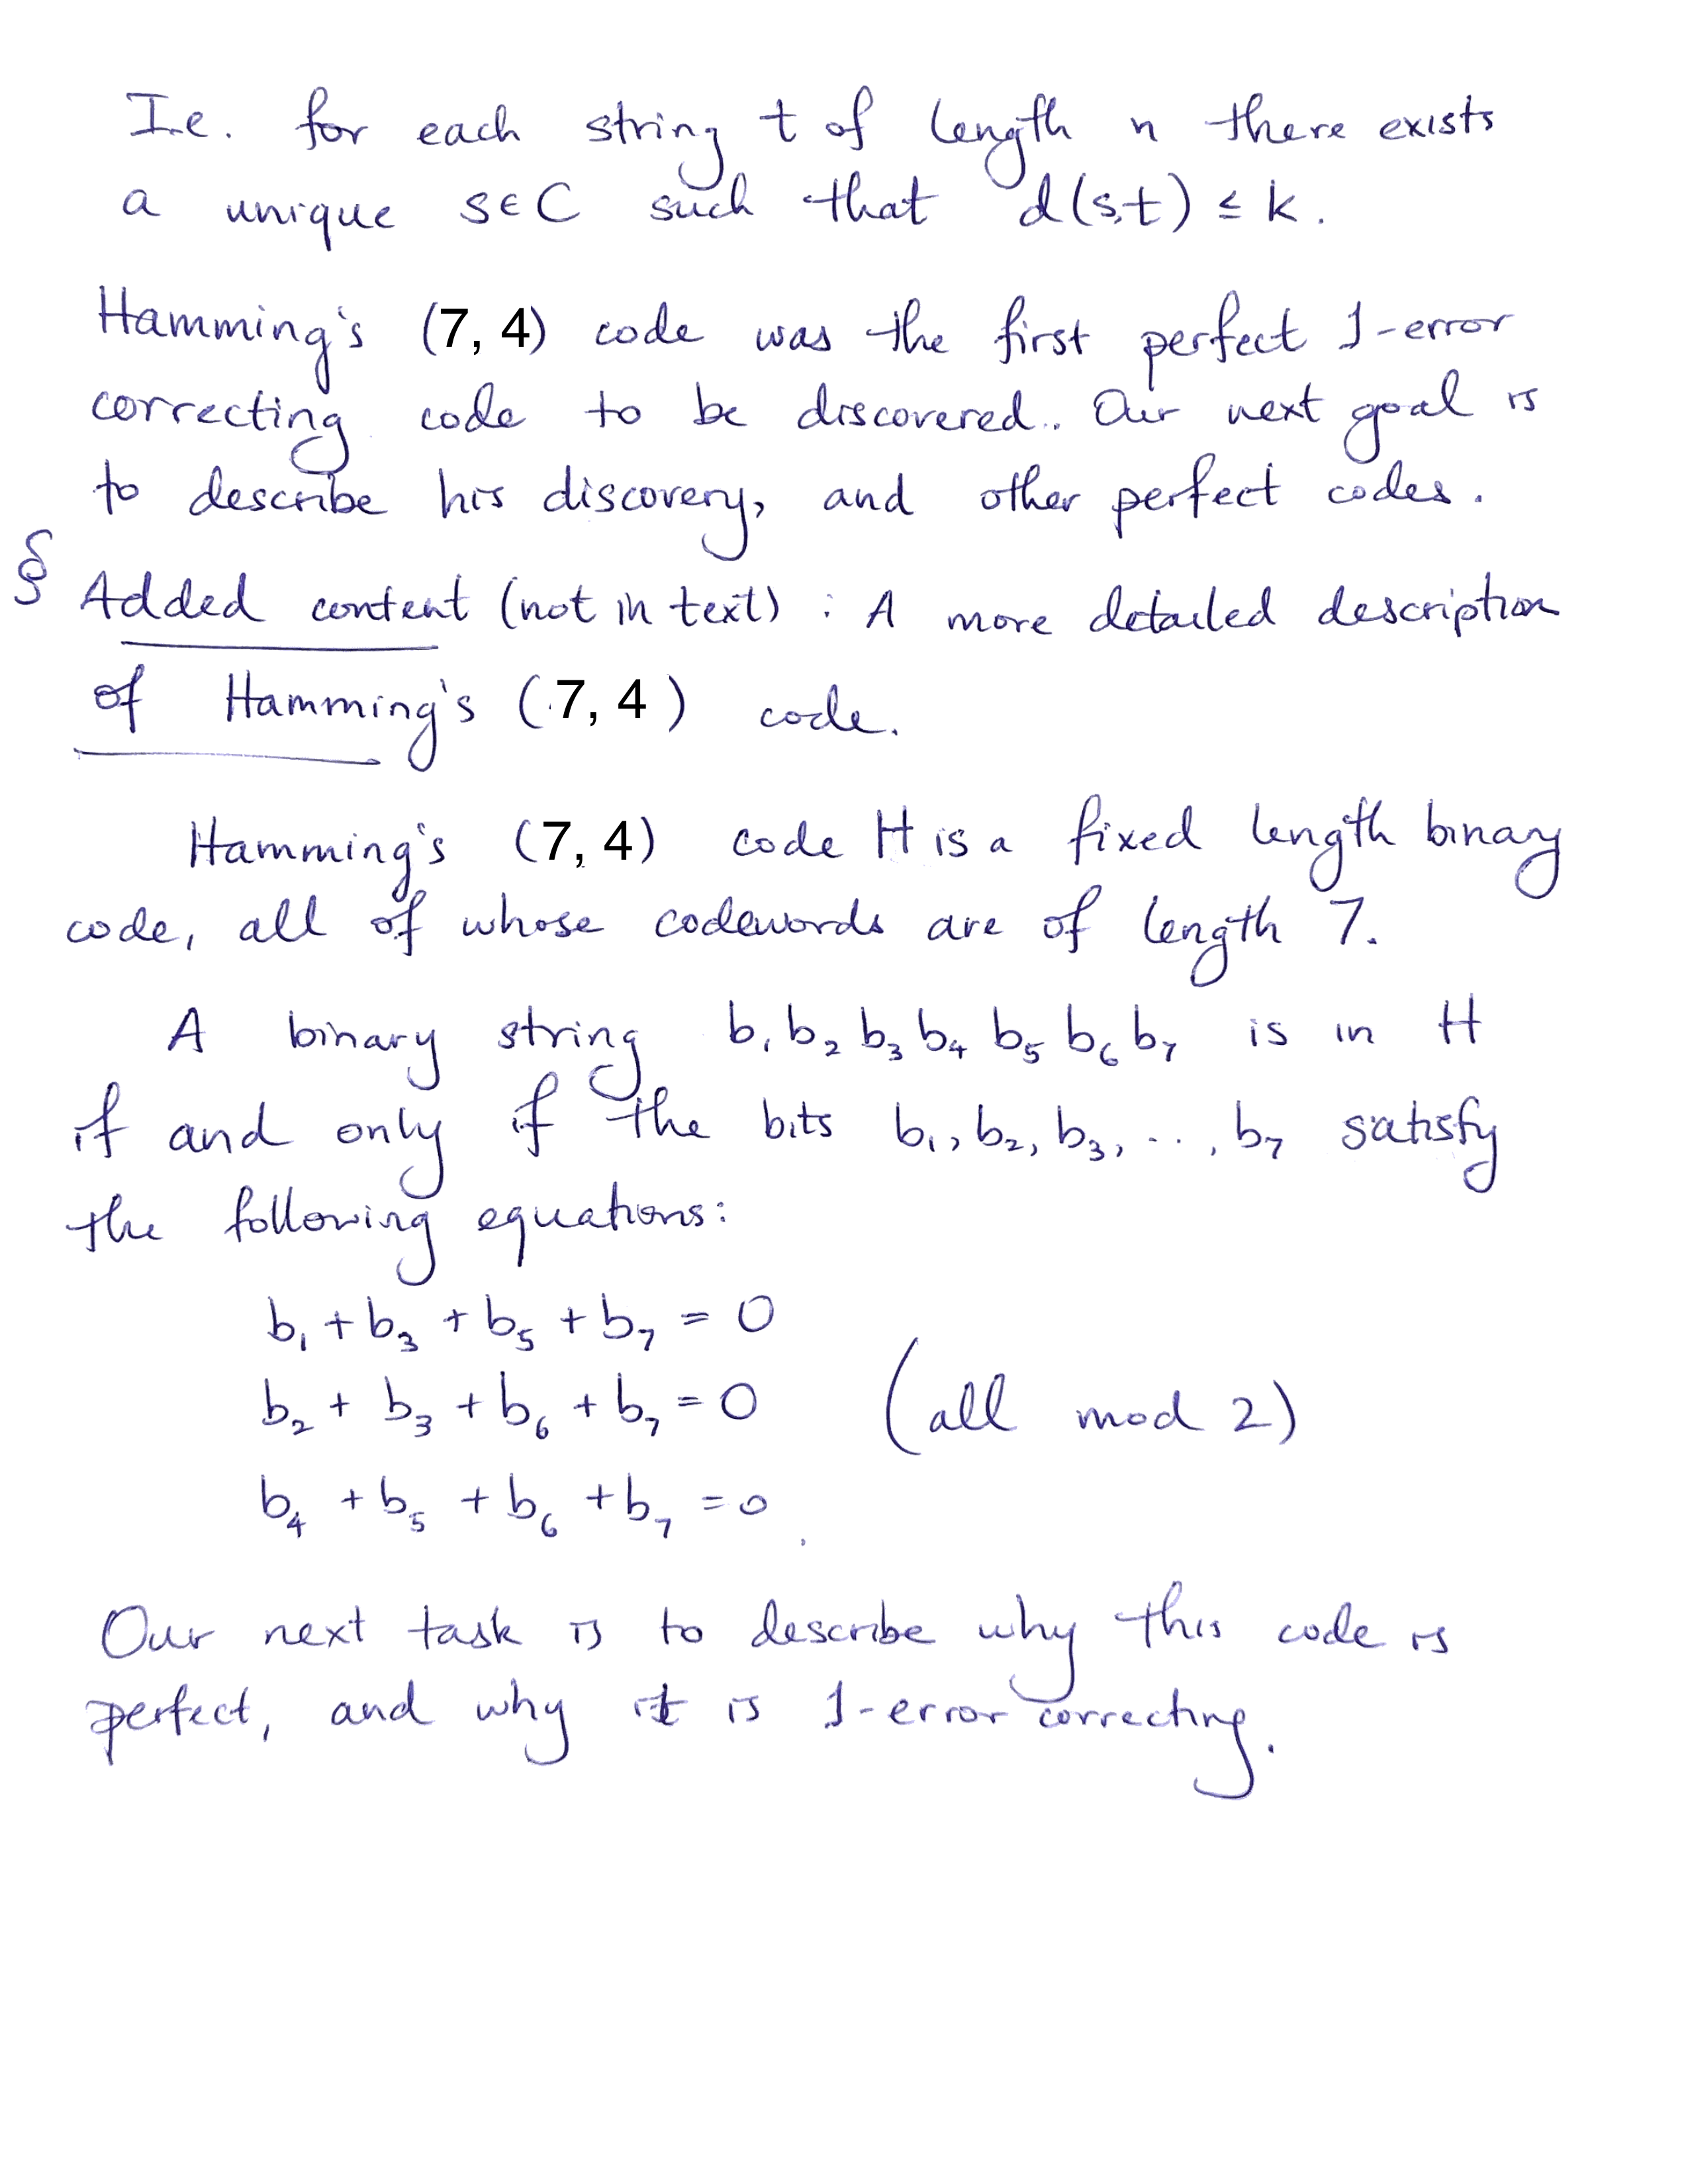 I.e. for each string t of length n there exists
a unique s∈C such that d(s,t) ≤ k.
Hamming's (7, 4) code was the first perfect 1-error
correcting code to be discovered.. Our next goal is
to describe his discovery, and other perfect codes.
§ Added content (not in text) : A more detailed description
of Hamming's (7, 4) code.
Hamming's (7, 4) code H is a fixed length binary
code, all of whose codewords are of length 7.
A binary string b₁ b₂ b₃ b₄ b₅ b₆ b₇ is in H
if and only if the bits b₁, b₂, b₃, ..., b₇ satisfy
the following equations:
b₁ + b₃ + b₅ + b₇ = 0
b₂ + b₃ + b₆ + b₇ = 0 (all mod 2)
b₄ + b₅ + b₆ + b₇ = 0 .
Our next task is to describe why this code is
perfect, and why it is 1-error correcting.